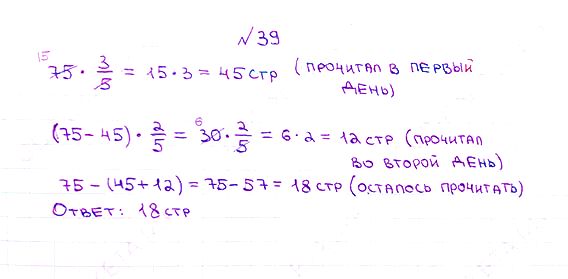 №39
75 · 3/5 = 15 · 3 = 45 стр (прочитал в первый
день)
(75 – 45) · 2/5 = 30 · 2/5 = 6 · 2 = 12 стр (прочитал
во второй день)
75 – (45 + 12) = 75 – 57 = 18 стр (осталось прочитать)
Ответ: 18 стр